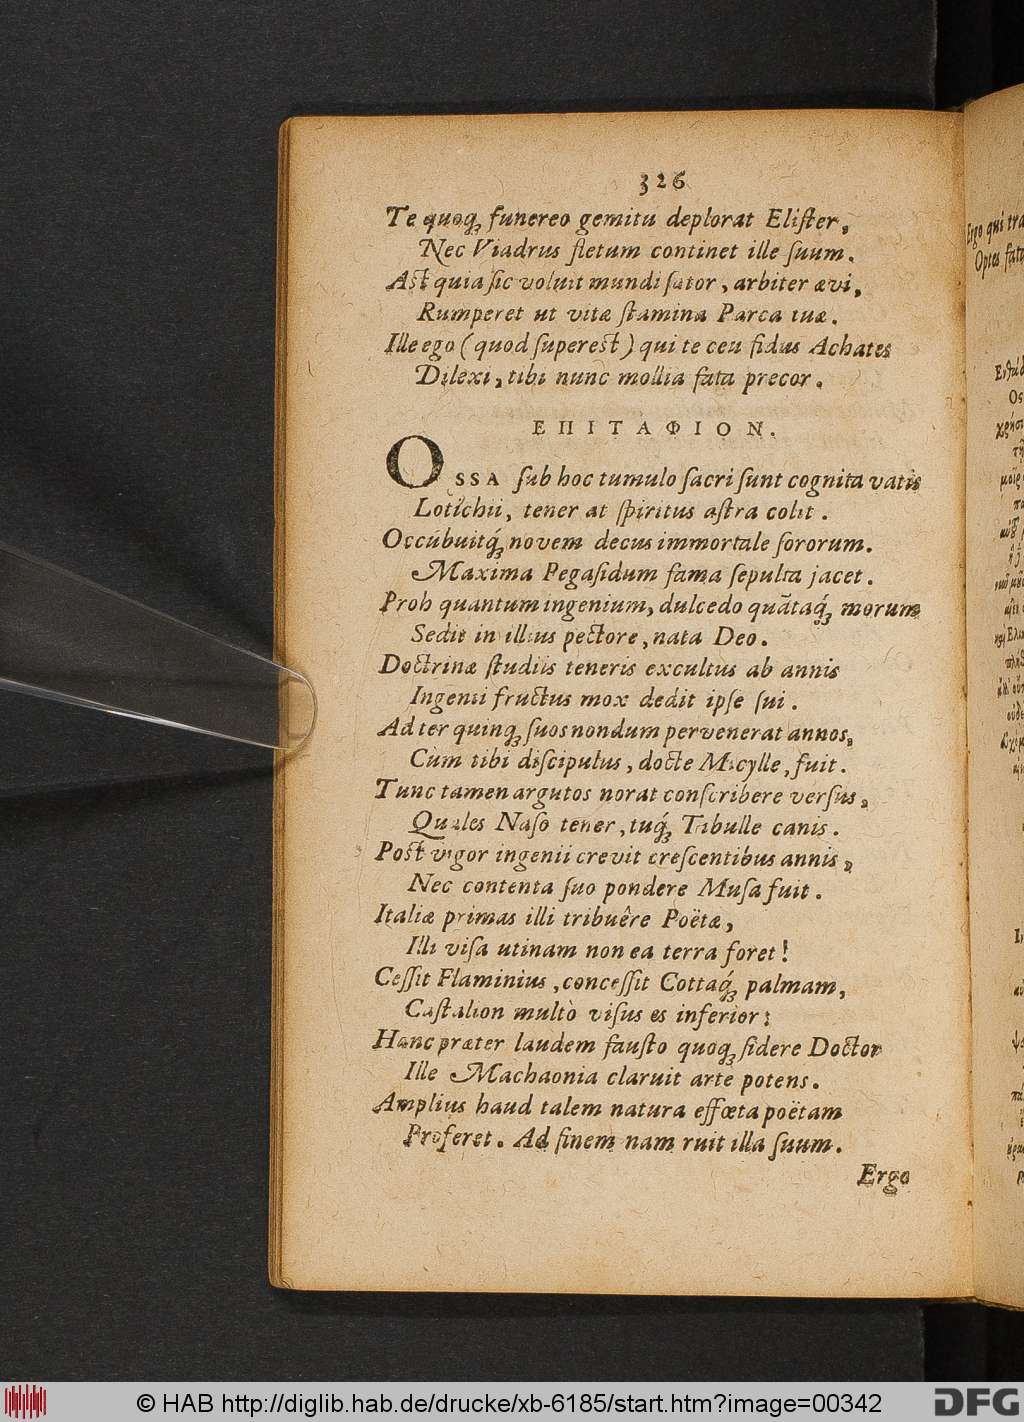 326
Te quoq; funereo gemitu deplorat Elister,
Nec Viadrus fletum continet ille ſuum.
Ast quia ſic voluit mundi ſator, arbiter ævi,
Rumperet ut vitæ ſtamina Parca tuæ.
Ille ego (quod ſuperest) qui te ceu fidus Achates
Dilexi, tibi nunc mollia fata precor.
ΕΠΙΤΑΦΙΟΝ.
OSSA ſub hoc tumulo ſacri ſunt cognita vatis
Lotichii, tener at ſpiritus aſtra colit.
Occubuitq́; novem decus immortale ſororum.
Maxima Pegaſidum fama ſepulta jacet.
Proh quantum ingenium, dulcedo quãtaq́; morum
Sedit in illius pectore, nata Deo.
Doctrinæ ſtudiis teneris excultus ab annis
Ingenii fructus mox dedit ipſe ſui.
Ad ter quinq; ſuos nondum pervenerat annos,
Cùm tibi diſcipulus, docte Micylle, fuit.
Tunc tamen argutos norat conſcribere verſus,
Quales Naſo tener, tuq́; Tibulle canis.
Post vigor ingenii crevit creſcentibus annis,
Nec contenta ſuo pondere Muſa fuit.
Italiæ primas illi tribuêre Poëtæ,
Illi viſa utinam non ea terra foret!
Ceſſit Flaminius, conceſſit Cottaq́; palmam,
Caſtalion multò viſus es inferior:
Hanc præter laudem fauſto quoq; ſidere Doctor
Ille Machaonia claruit arte potens.
Amplius haud talem natura effœta poëtam
Proferet. Ad finem nam ruit illa ſuum.
Ergo
Ergo qui tra
Optes fata
© HAB http://diglib.hab.de/drucke/xb-6185/start.htm?image=00342
DFG